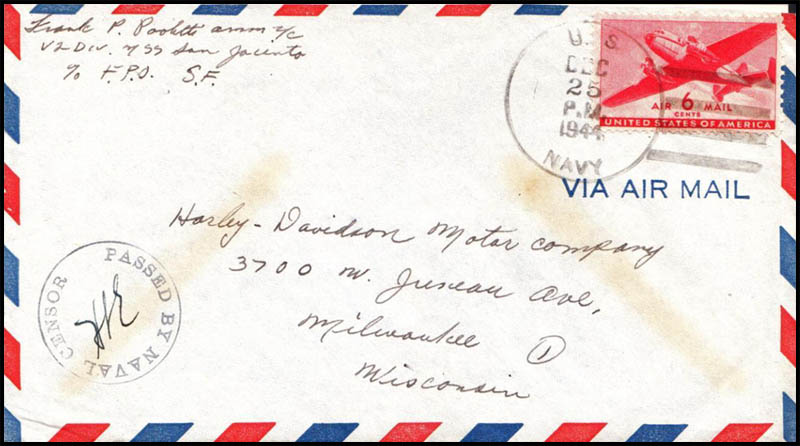 Frank P. Paoletti amm 2/c
V2 Div. USS San Jacinto
% F.P.O. S.F.
U. S.
DEC
25
P.M.
1944
NAVY
AIR 6 MAIL
CENTS
UNITED STATES OF AMERICA
VIA AIR MAIL
Harley-Davidson Motor company
3700 W. Juneau Ave,
Milwaukee 1
Wisconsin
PASSED BY NAVAL CENSOR